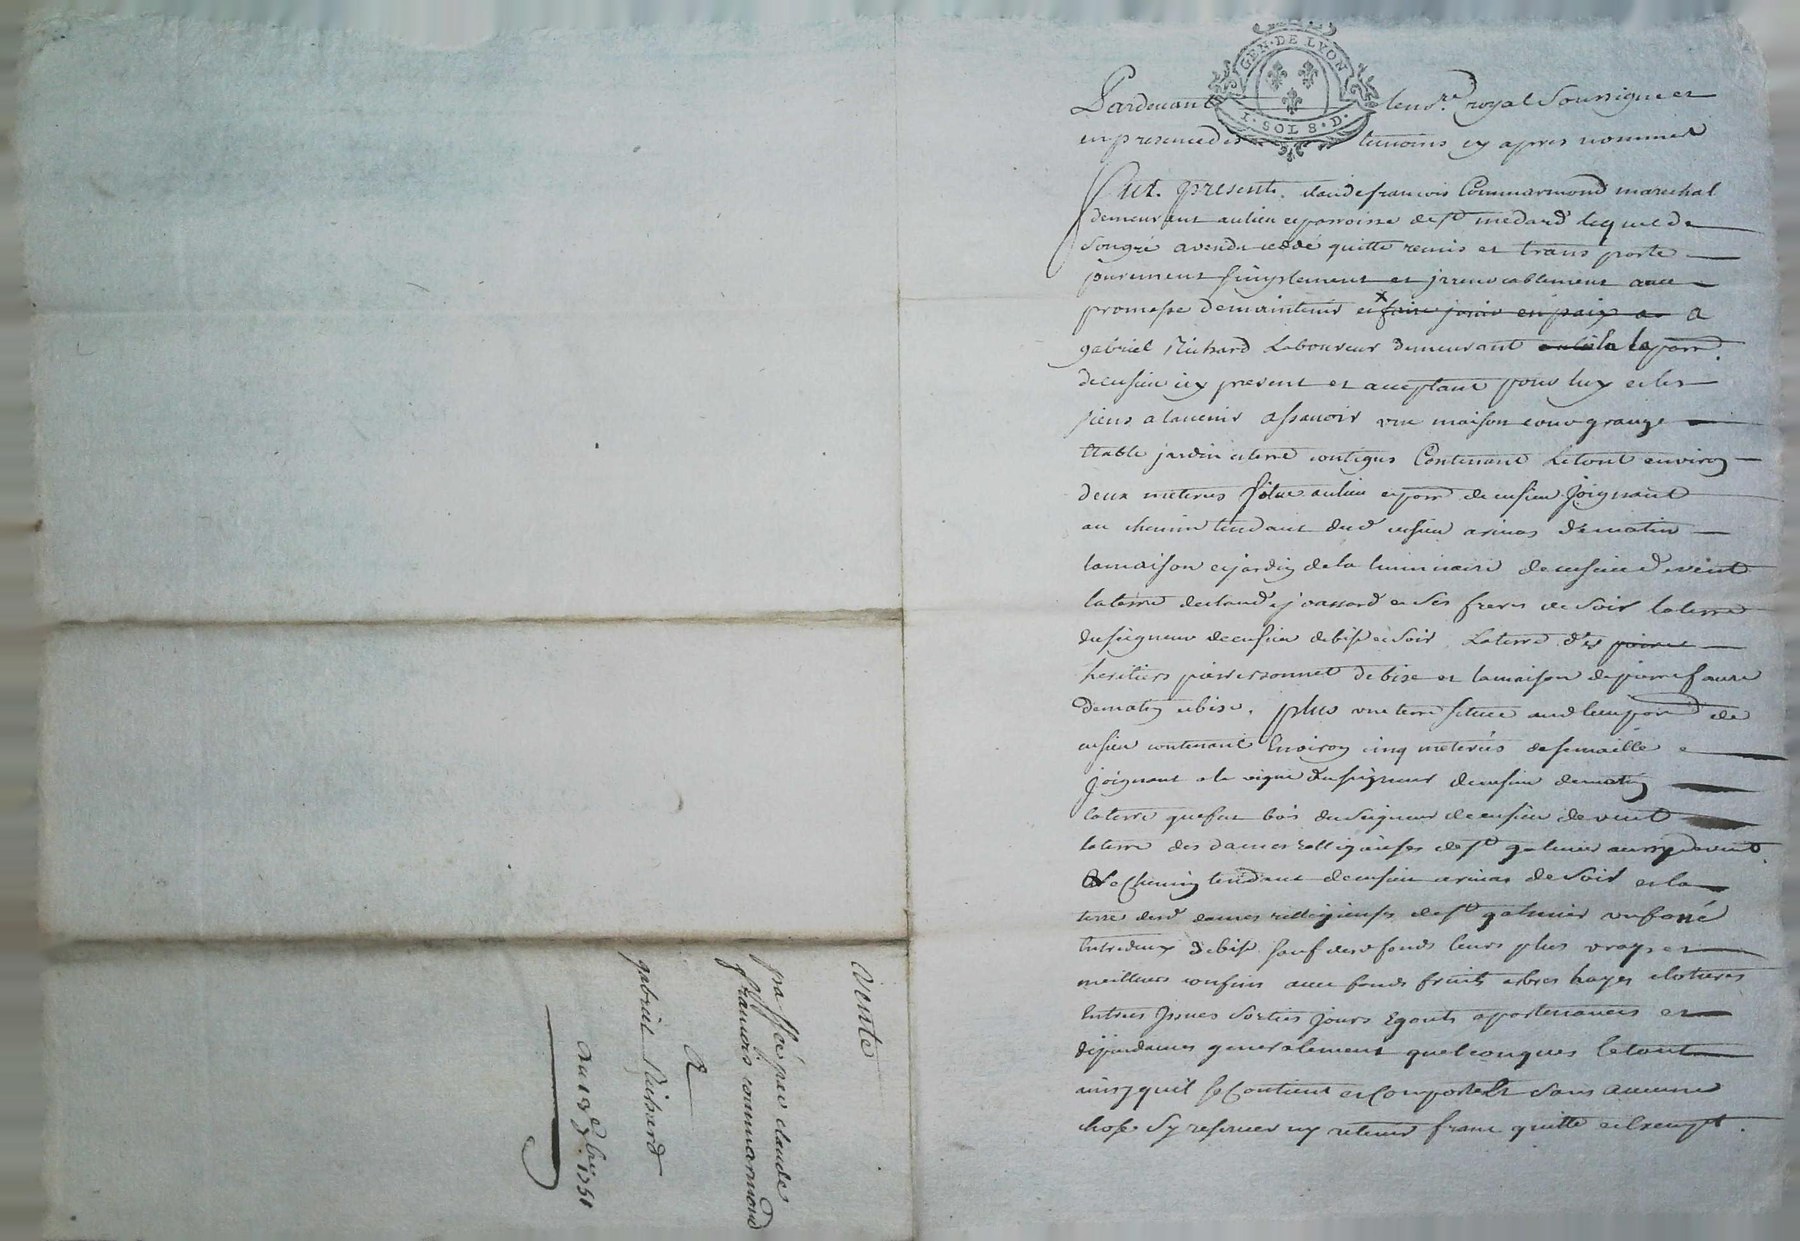 GEN·DE LYON
1·SOL 8·D·
Pardevant le no.re royal Soussigne et
en presence des temoins cy apres nommes
fut present. claude francois Commarmond marechal
demeurant au lieu et parroisse de st medard lequel de
son gré a vendu cedé quitte remis et transporte
purement simplement et jrrevocablement avec
promesse de maintenir et x faire jouir en paix a
gabriel Richard Laboureur demeurant la parr.
de cusieu icy present et acceptant pour luy et les
siens a lavenir assavoir une maison cour grange
Etable jardin et terre contigus Contenant Le tout environ
deux meterees situe au lieu et parr de cusieu Joignant
au chemin tendant dud cusieu a rivas de matin
la maison et jardin de la luminaire de cusieu de vent
la terre de claude jvassard et ses freres de soir la terre
du seigneur de cusieu de bise et soir La terre des
heritiers pierre sonnet de bize et la maison de pierre faure
de matin et bise. plus une terre scituee aud lieu parr de
cusieu contenant Environ cinq meterées de semaille
joignant a la vigne du seigneur de cusieu de matin
la terre que fut bois du seigneur de cusieu de vent
la terre des dames relligieuses de st galmier aussy de vent
le Chemin tendant de cusieu a rivas de soir et la
terre desd dames relligieuses de st galmier un fossé
Entredeux de bise sauf desd fonds leurs plus vrays et
meilleurs confins avec fonds fruits arbres hayes clotures
Entrees Jssues sorties jours Egouts apartenances et
dependances generalement quelconques le tout
ainsy quil se Contient et Comporte Et sans aucune
chose sy reserver ny retenir franc quitte et Exempt.
vente
passée par claude
francois commarmond
A
gabriel Richard
du 19e 7bre 1751